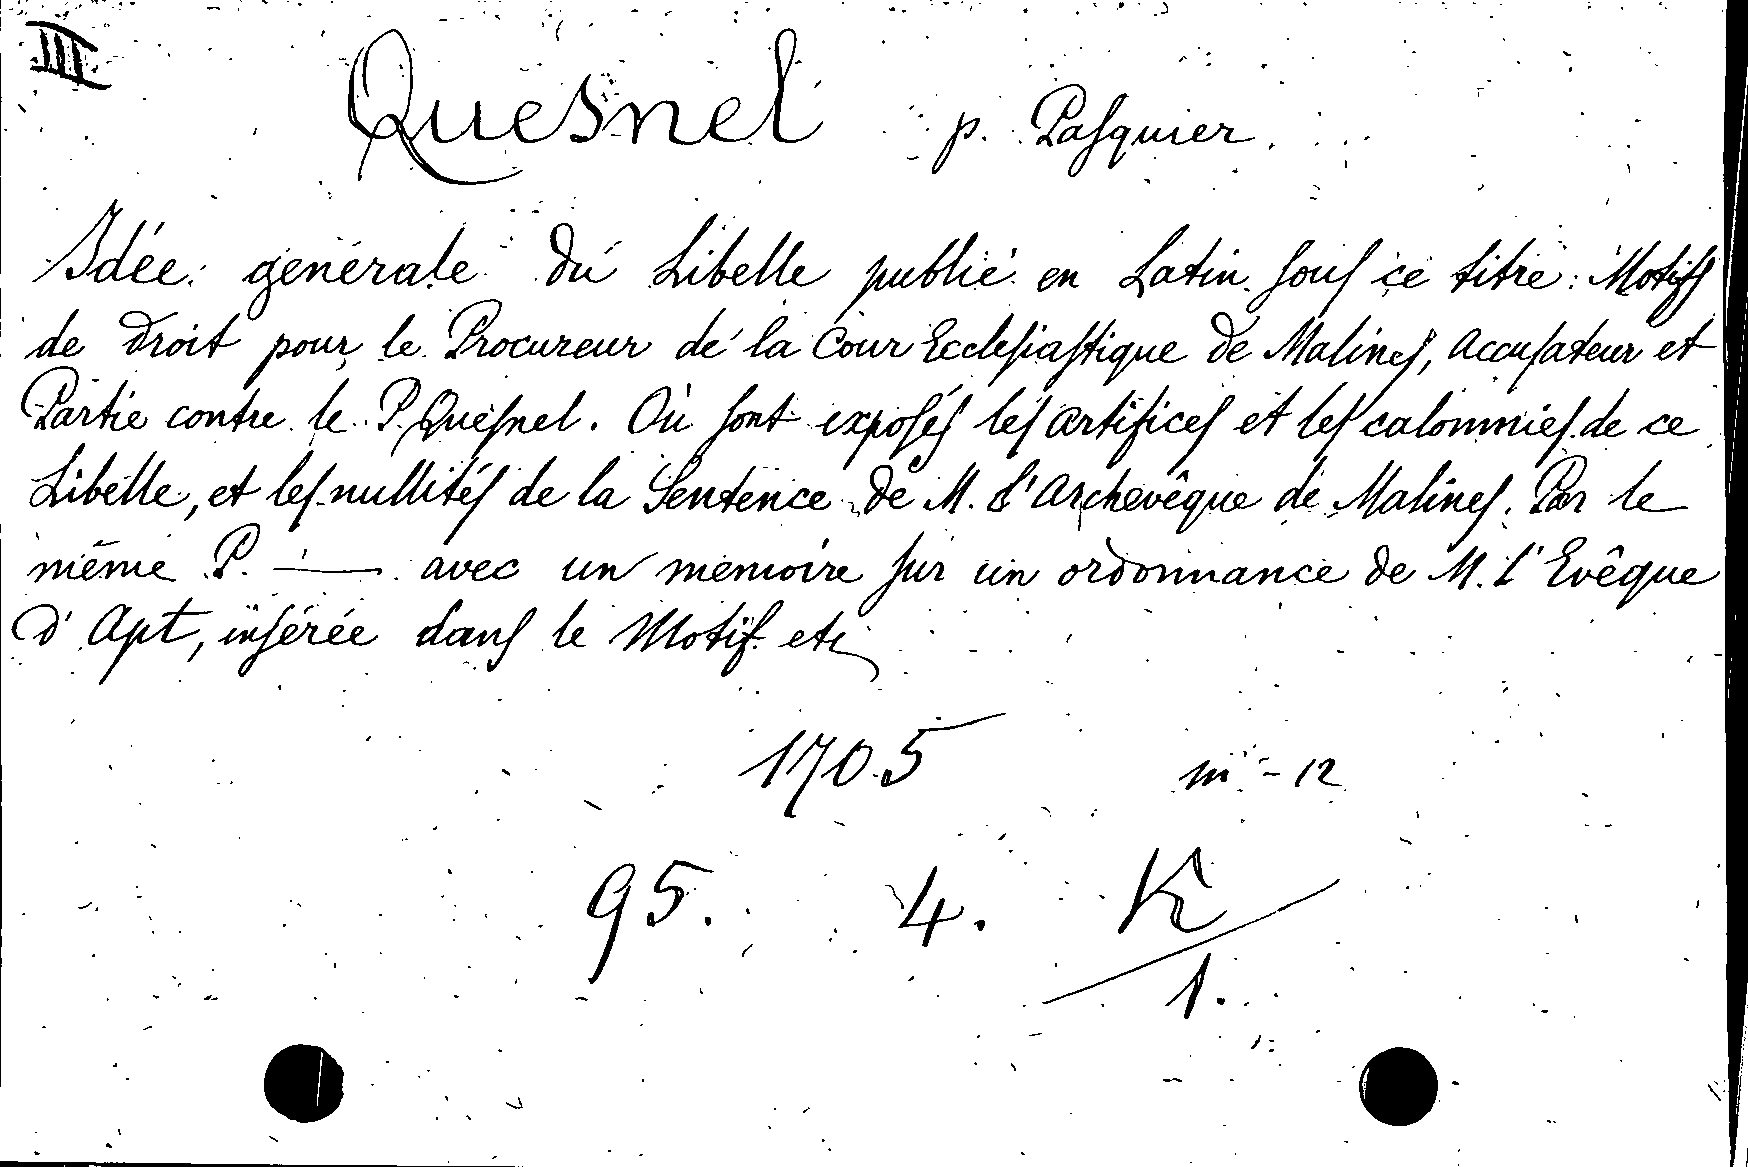 III
Quesnel p. Pasquier.
Idée générale du Libelle publié en Latin sous ce titre: Motifs
de droit pour le Procureur de la Cour Ecclesiastique de Malines, accusateur et
Partie contre le P. Quesnel. Où sont exposés les artifices et les calomnies de ce
Libelle, et les nullités de la Sentence de M. l'Archevêque de Malines. Par le
même P. — avec un mémoire sur un ordonnance de M. l'Evêque
d'Apt, insérée dans le Motif etc
1705 in-12
95. 4. K
1.